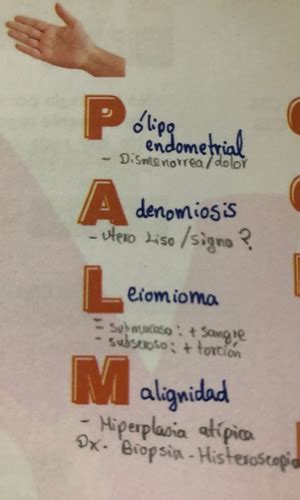 Pólipo
endometrial
- Dismenorrea/dolor
Adenomiosis
- Utero Liso / Signo ?
Leiomioma
= submucoso: + sangre
- subseroso: + torción
Malignidad
- Hiperplasia atípica
Dx. Biopsia - Histeroscopia